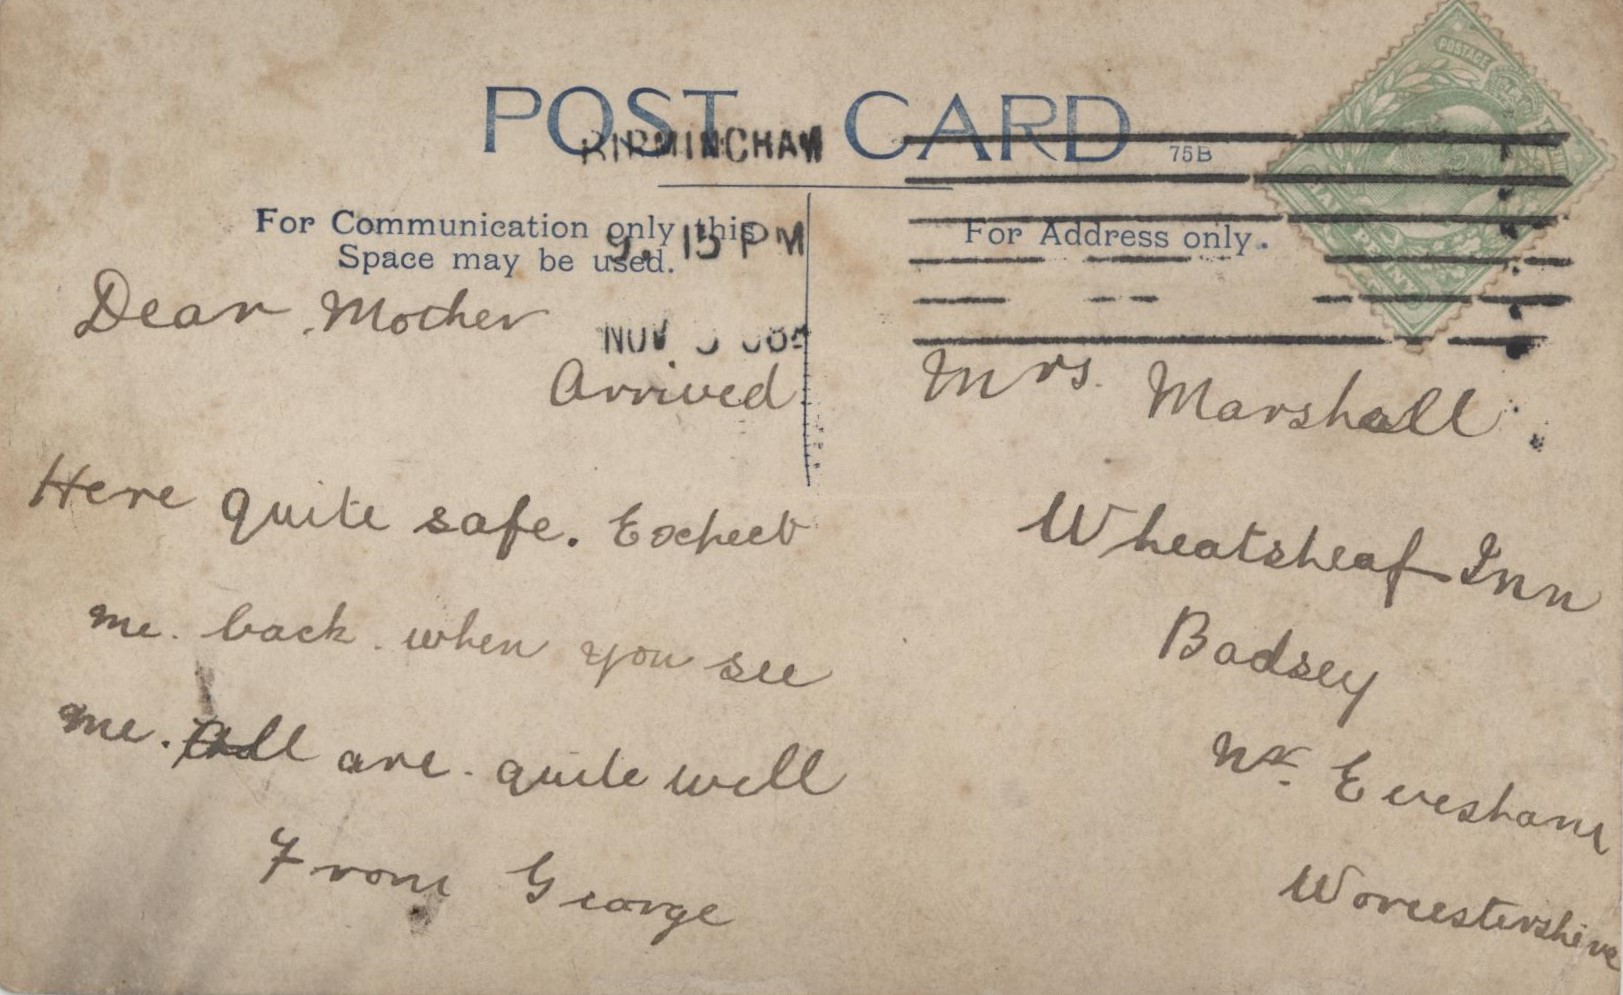 POST CARD
75B
BIRMINGHAM
9. 15 PM
NOV
For Communication only this
Space may be used.
For Address only.
POSTAGE
Dear Mother
Arrived
Here quite safe. Expect
me. back. when you see
me. All are. quite well
From George
Mrs. Marshall
Wheatsheaf Inn
Badsey
Nr. Evesham
Worcestershire